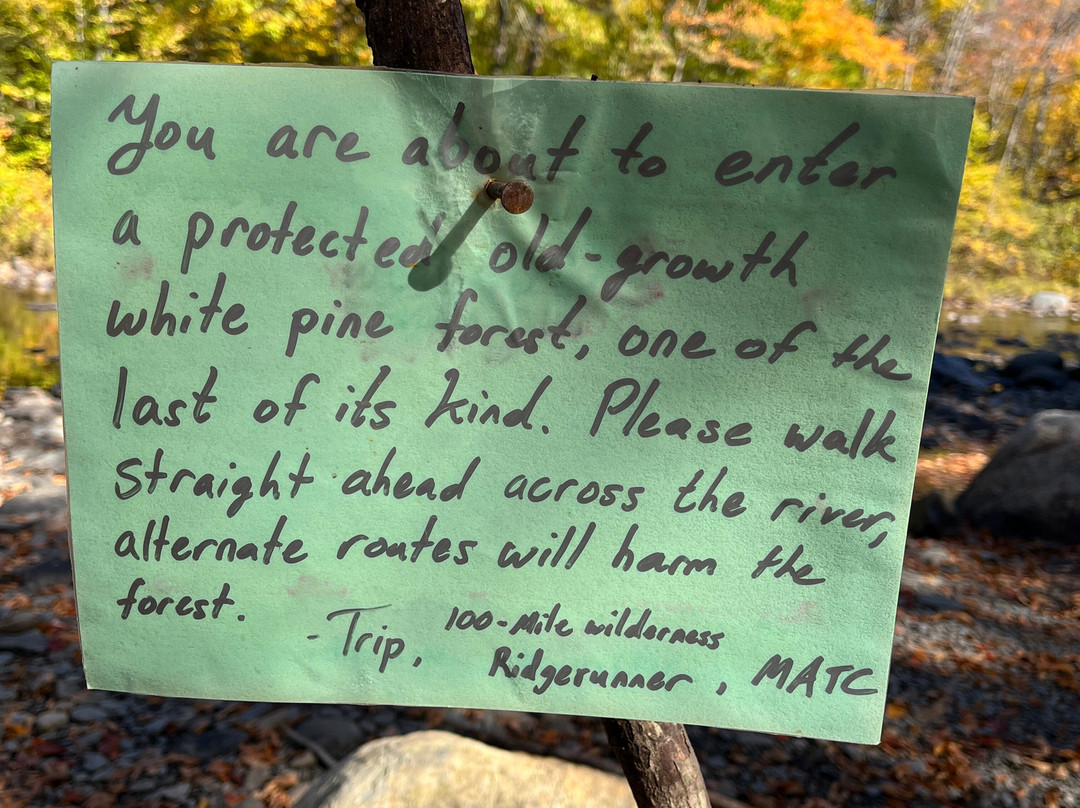 You are about to enter
a protected old-growth
white pine forest, one of the
last of its kind. Please walk
straight ahead across the river,
alternate routes will harm the
forest.
-Trip, 100-Mile wilderness
Ridgerunner, MATC